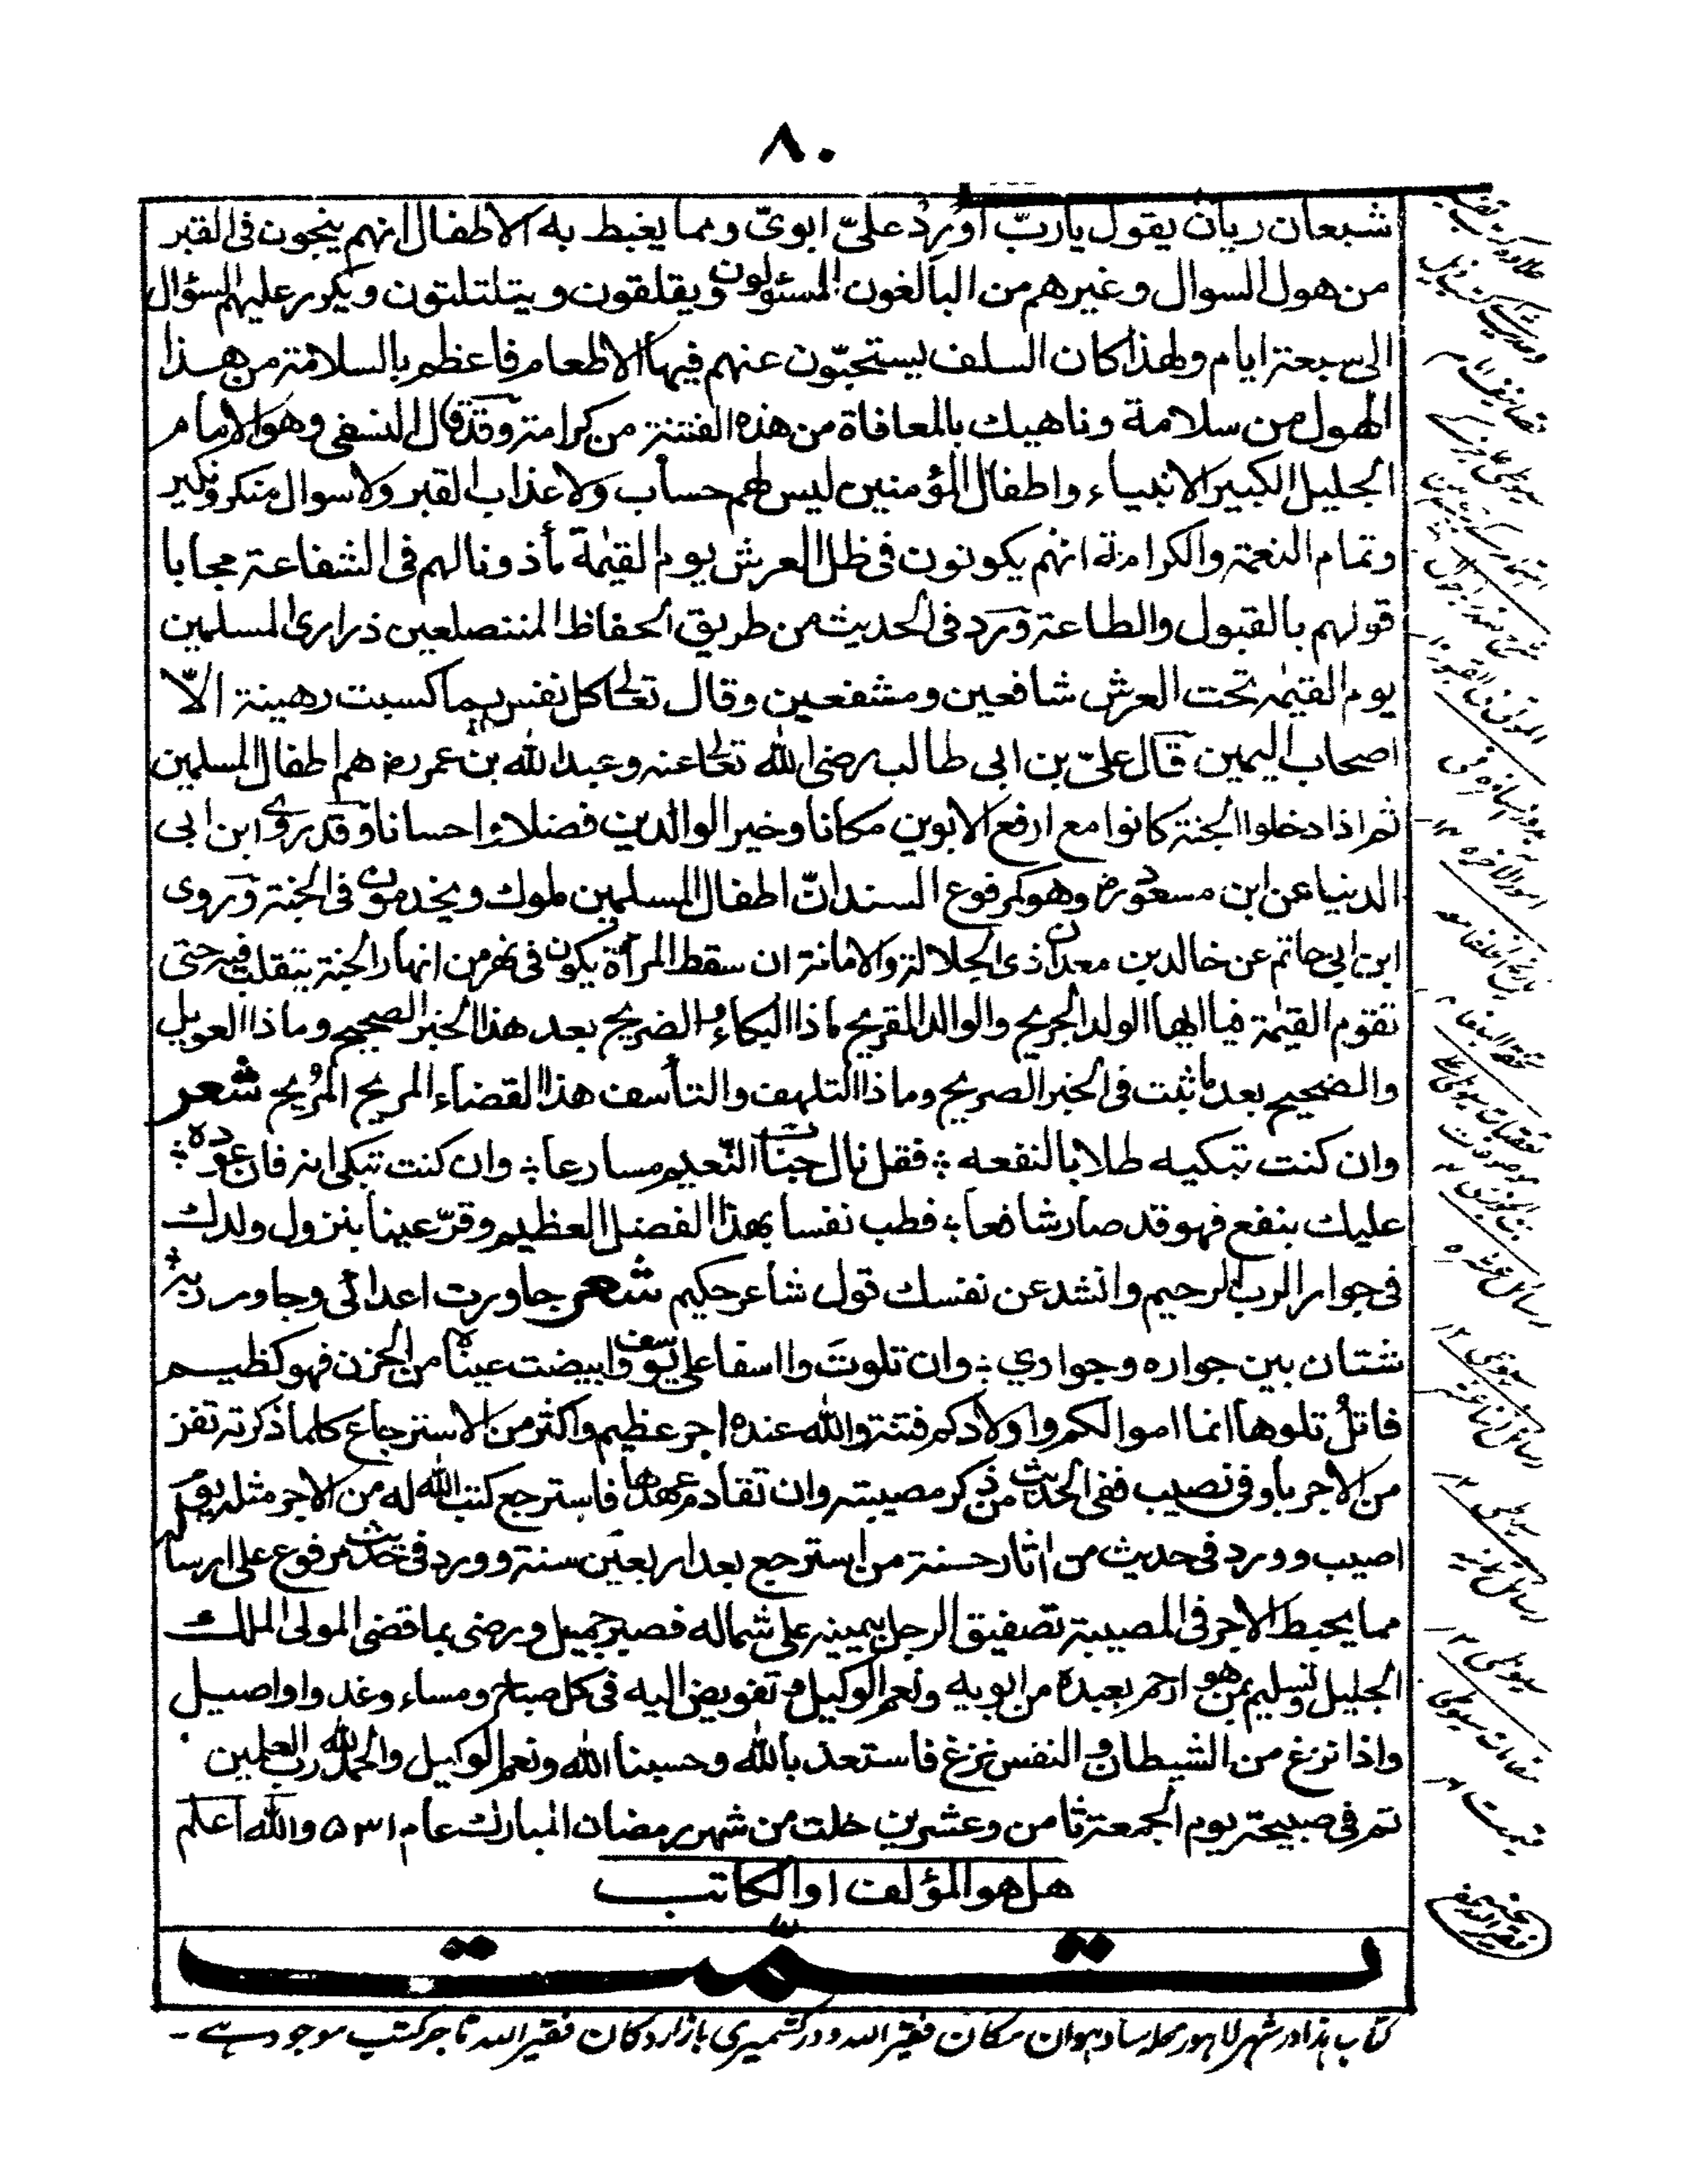 ٨٠
شبعان ريان يقول يارب اورد على ابوى ومما يغبط به الاطفال انهم ينجون فى القبر
من هول السوال وغيرهم من البالغون المسئولون ويقلقون ويتلتلتون ويكرر عليهم السؤال
الى سبعة ايام ولهذا كان السلف يستحبون عنهم فيها الاطعام فاعظم بالسلامة من هذا
الهول من سلامة وناهيك بالمعافاة من هذه الفتنة من كرامة وقد قال النسفى وهو الامام
الجليل الكبير الانبياء واطفال المؤمنين ليس لهم حساب ولا عذاب القبر ولا سوال منكر ونكير
وتمام النعمة والكرامة انهم يكونون فى ظل العرش يوم القيمة مأذونا لهم فى الشفاعة مجابا
قولهم بالقبول والطاعة ورد فى الحديث من طريق الحفاظ المتضلعين ذرارى المسلمين
يوم القيمة تحت العرش شافعين ومشفعين وقال تعالى كل نفس بما كسبت رهينة الا
اصحاب اليمين قال على بن ابى طالب رضى الله تعالى عنه وعبد الله بن عمر رض هم اطفال المسلمين
ثم اذا دخلوا الجنة كانوا مع ارفع الابوين مكانا وخير الوالدين فضلا واحسانا وقد روى ابن ابى
الدنيا عن ابن مسعود رض وهو كمرفوع السند ان اطفال المسلمين ملوك ويخدمون فى الجنة وروى
ابن ابى حاتم عن خالد بن معدان ذى الجلالة والامانة ان سقط المرأة يكون فى نهر من انهار الجنة يتقلب فيه حتى
تقوم القيمة فيا ايها الولد الجريح والوالد القريح ماذا البكاء والضريح بعد هذا الخبر الصحيح وماذا العويل
والضجيج بعد ما ثبت فى الخبر الصريح وماذا التلهف والتأسف هذا القضاء المريح المريح شعر
وان كنت تبكيه طلابا لنفعه فقد نال جنات النعيم مسارعا وان كنت تبكى انه فات عوده
عليك بنفع فهو قد صار شافعا فطب نفسا بهذا الفضل العظيم وقر عينا بنزول ولدك
فى جوار الرب الرحيم وانشد عن نفسك قول شاعر حكيم شعر جاورت اعدائى وجاور ربه
شتان بين جواره وجوارى وان تلوت وااسفا على يوسف وابيضت عيناه من الحزن فهو كظيم
فاتل تلوها انما اموالكم واولادكم فتنة والله عنده اجر عظيم واكثر من الاسترجاع كلما ذكرته تفز
من الاجر باوفى نصيب ففى الحديث من ذكر مصيبته وان تقادم عهدها فاسترجع كتب الله له من الاجر مثله يوم
اصيب وورد فى حديث من اثار حسنة من استرجع بعد اربعين سنة وورد فى حديث مرفوع على ارسال
مما يحبط الاجر فى المصيبة تصفيق الرجل بيمينه على شماله فصبر جميل ورضى بما قضى المولى الملك
الجليل وتسليم لمن هو ارحم بعبده من ابويه ونعم الوكيل وتفويض اليه فى كل صباح ومساء وغدو واصيل
واذا نزغ من الشيطان والنفس نزغ فاستعذ بالله وحسبنا الله ونعم الوكيل والحمد لله رب العلمين
تم فى صبيحة يوم الجمعة ثامن وعشرين خلت من شهر رمضان المبارك عام ٥٣١ والله اعلم
هل هو المؤلف او الكاتب
تمت
كتاب ہذا در شہر لاہور محلہ سادہوان مكان فقیر اللہ و در كشمیری بازار دكان فقیر اللہ تاجر كتب موجود ہے ۔